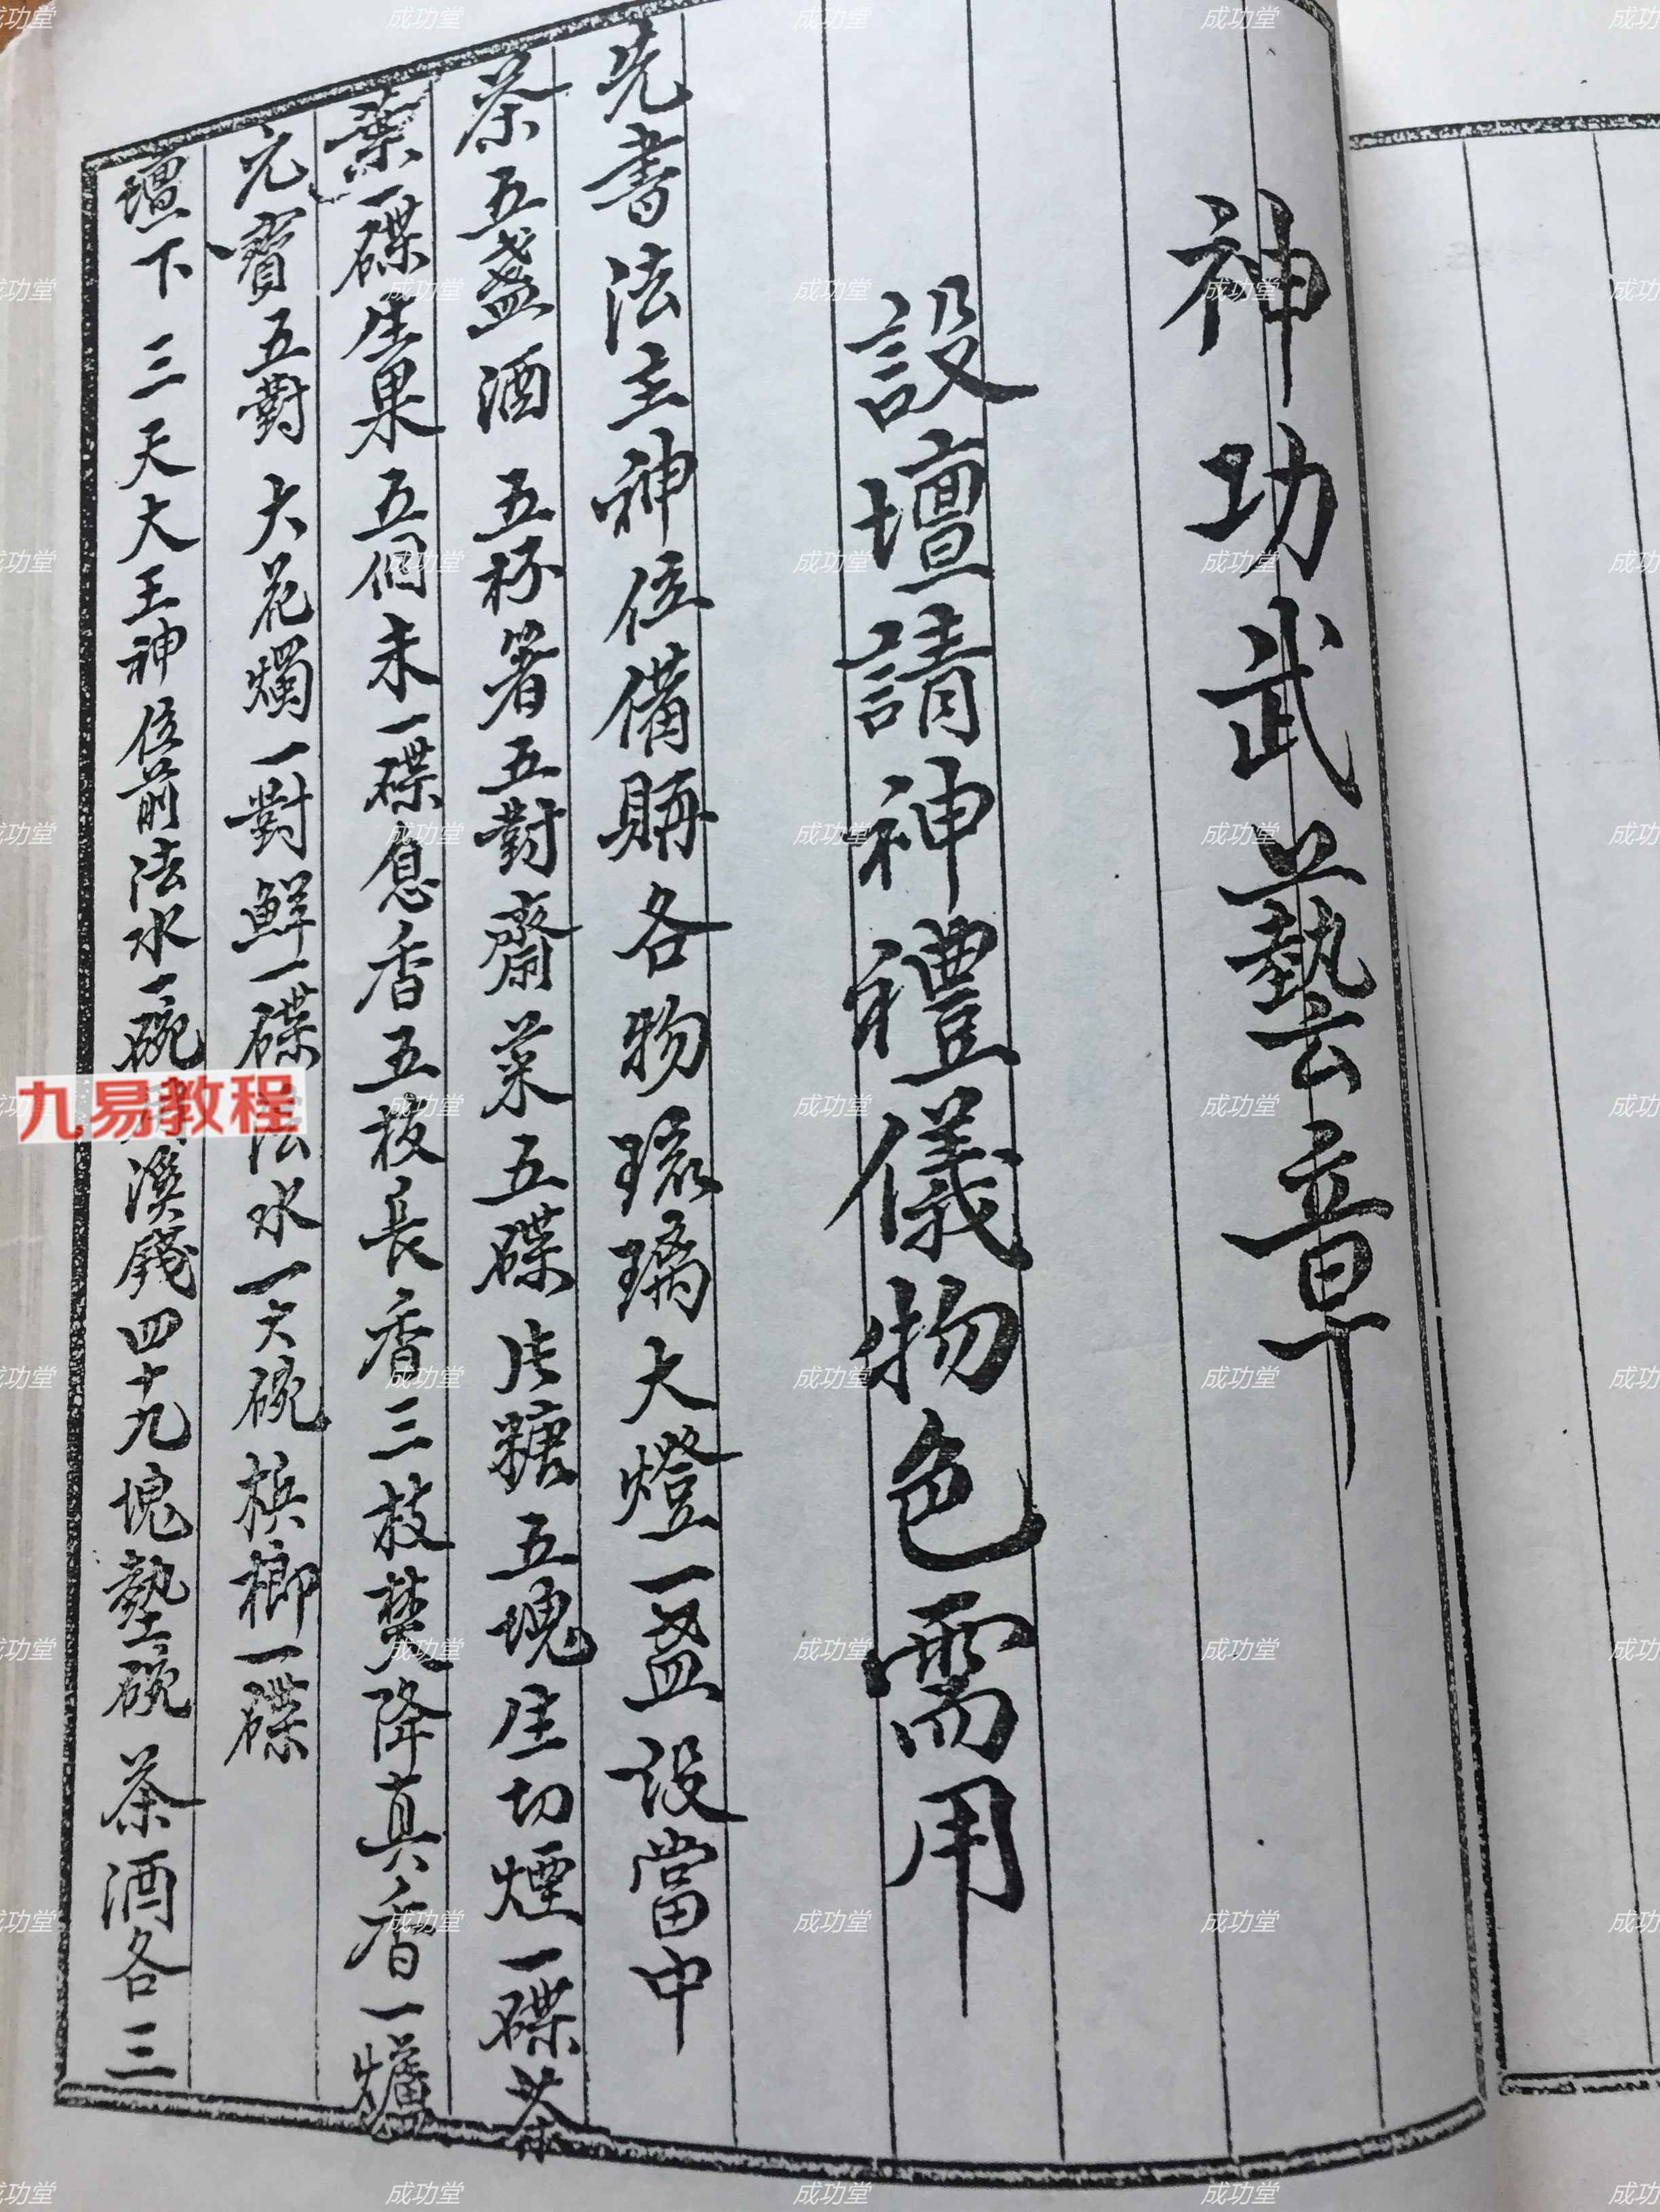 神功武藝章
設壇請神禮儀物色需用
先書法主神位備賬各物琉璃大燈一盞設當中
茶五盞酒五杯箸五對齋菜五碟片糖五塊生切煙一碟茶
葉一碟生果五個米一碟息香五枝長香三枝焚降真香一爐
元寶五對大花燭一對鮮一碟法水一大碗檳榔一碟
壇下三天大王神位前法水一碗溪錢四十九塊墊碗茶酒各三
九易教程
成功堂